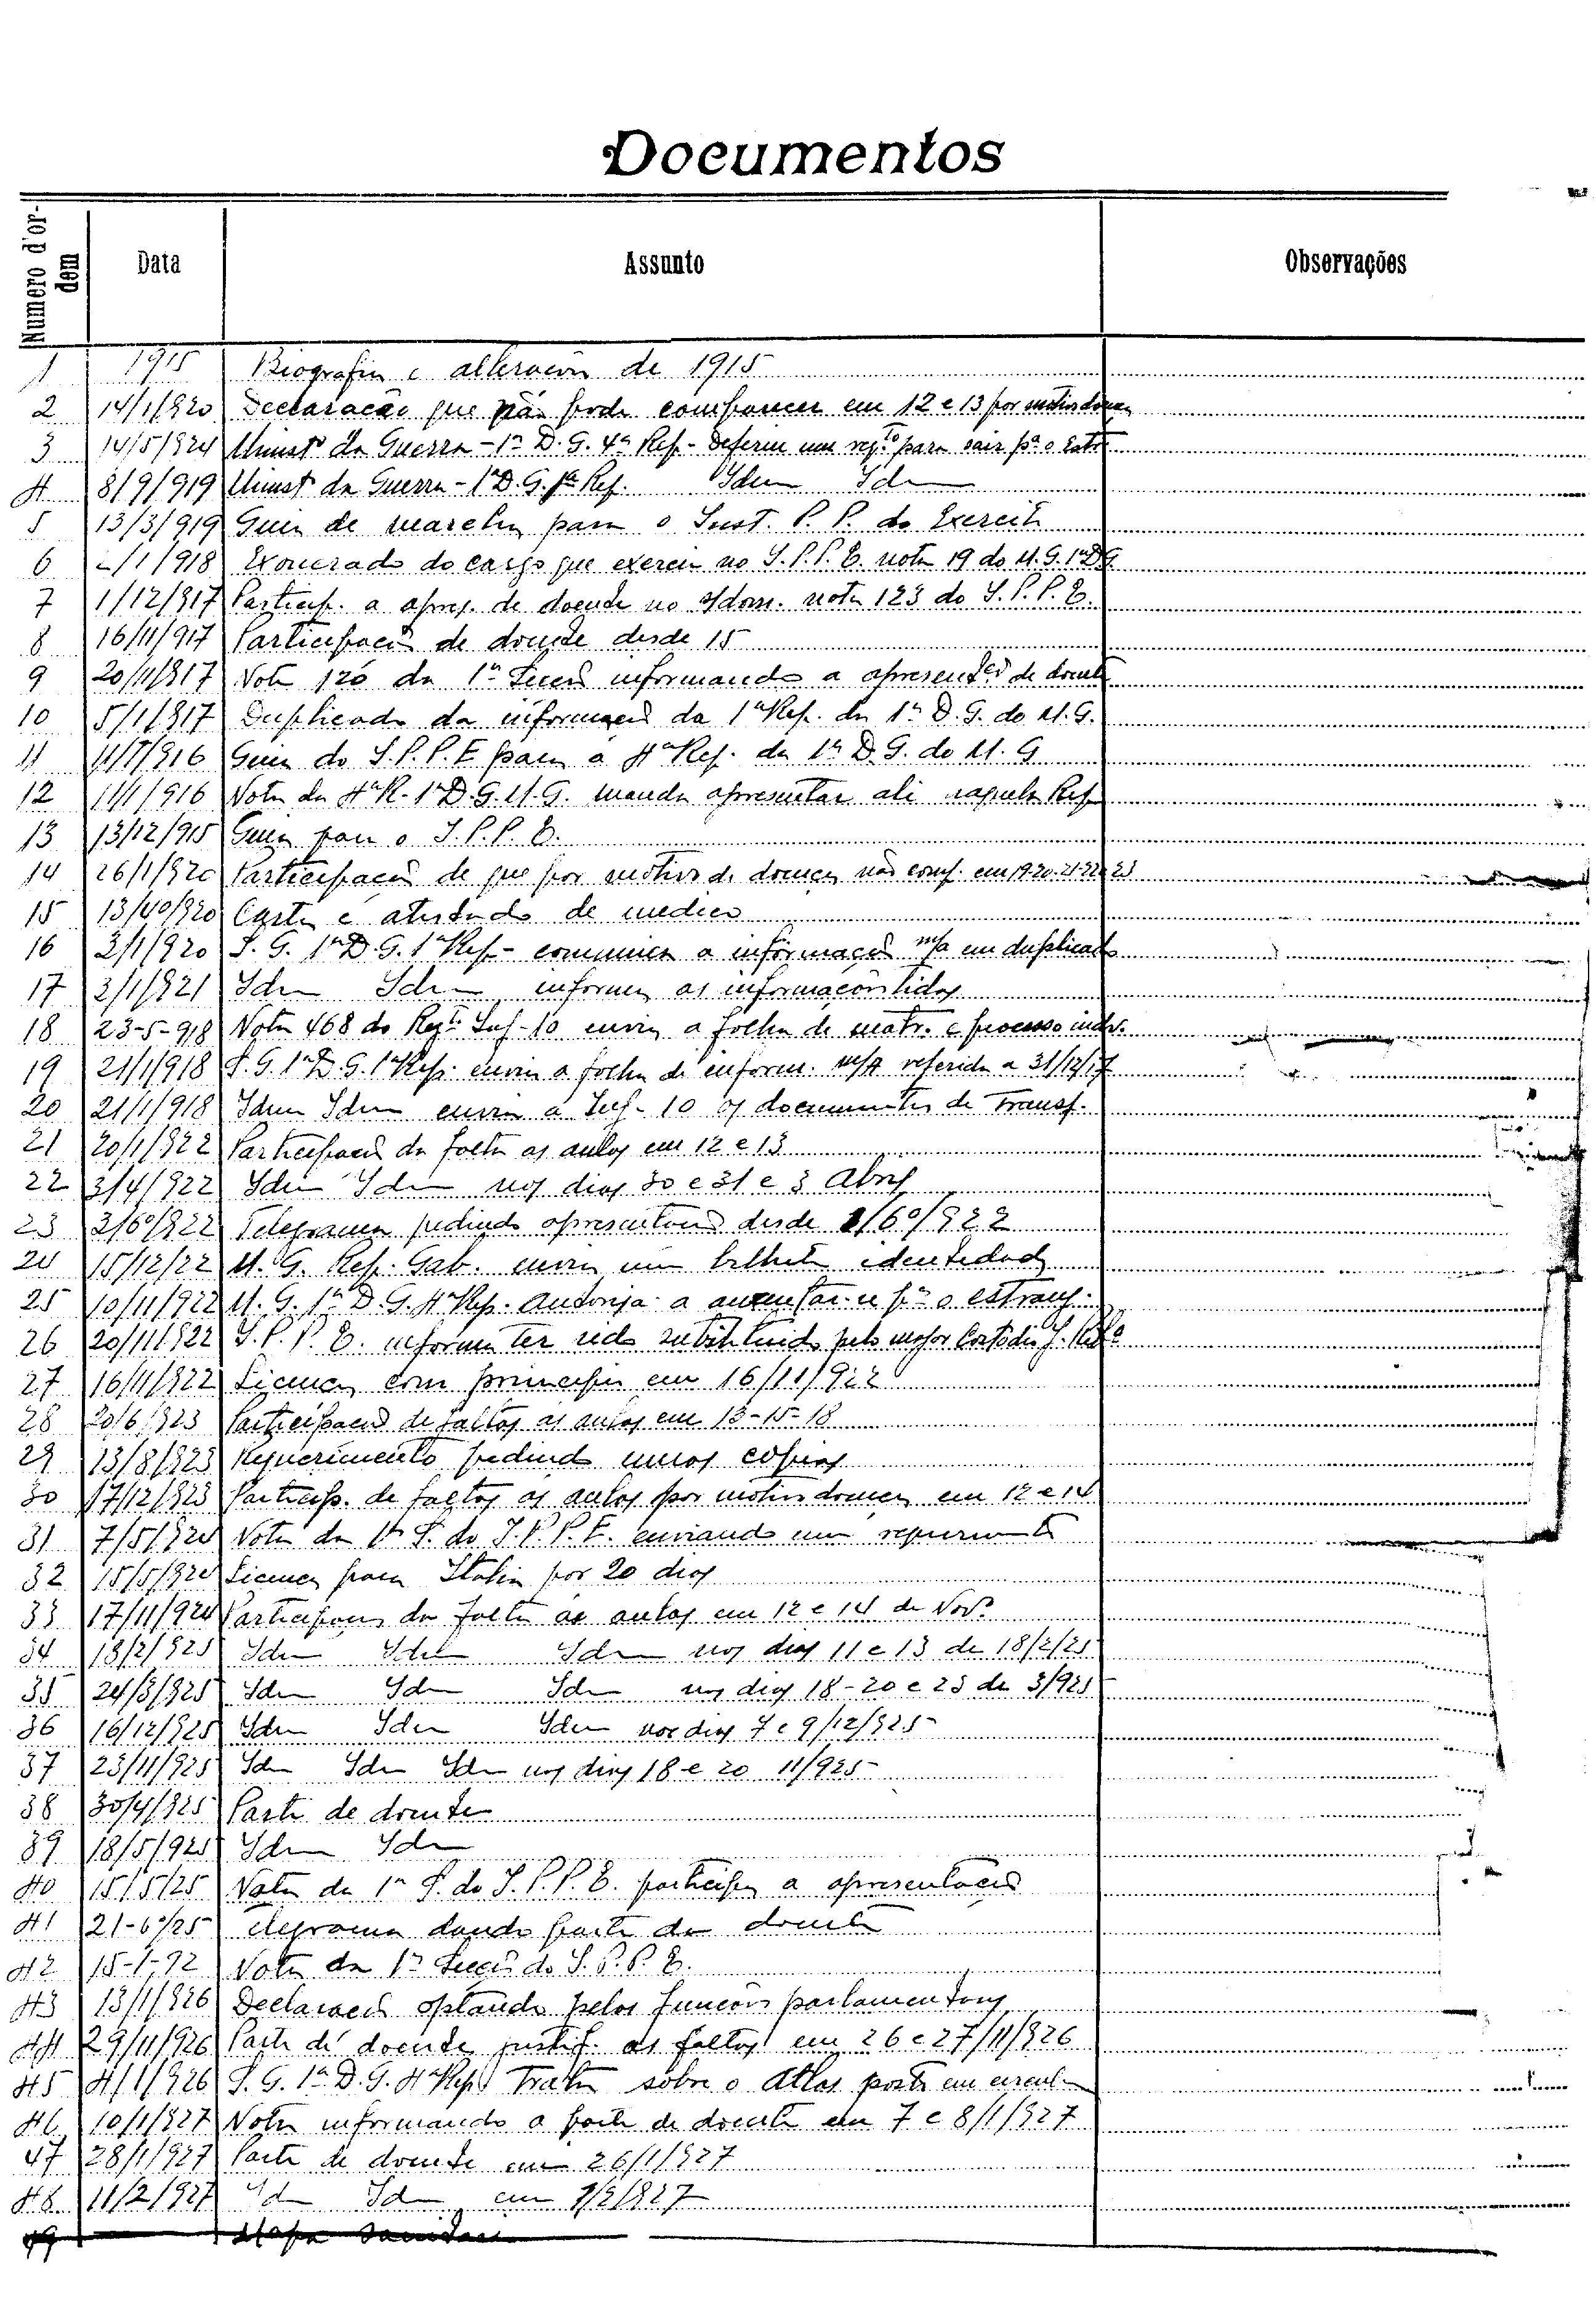 Documentos
Numero d'ordem Data Assunto Observações
1 1915 Biografia e alteracões de 1915
2 14/1/920 Declaração que não pode comparecer em 12 e 13 por motivo doença
3 14/5/924 Minist° da Guerra - 1ª D. G. 4ª Rep. - Deferin um reqto para sair pª o Estr
4 8/9/919 Minist da Guerra - 1ª D. G. 1ª Rep. Idem Idem
5 13/3/919 Guia de marcha para o Inst. P. P. do Exercito
6 -/1/918 Exonerado do cargo que exercia no I. P. P. E. nota 19 do M. G. 1ª D G
7 1/12/917 Particip. a apres. de doente no dom. nota 123 do I. P. P. E.
8 16/11/917 Participacão de doente desde 15
9 20/11/917 Nota 120 da 1ª Seccão informando a apresentção de doente
10 5/1/917 Duplicado da informacão da 1ª Rep. da 1ª D. G. do M. G.
11 11/7/916 Guia do I. P. P. E para a 4ª Rep. da 1ª D. G. do M. G
12 11/1/916 Nota da 4ª R. 1ª D. G. M. G. manda apresentar ali naquela Rep
13 13/12/915 Guia para o I. P. P. E.
14 26/1/920 Participacão de que por motivo de doença não comp. em 19-20-21-22 e 23
15 13/10/920 Carta e atestado de medico
16 3/1/920 S. G. 1ª D. G. 1ª Rep - comunica a informacão m/a em duplicado
17 3/1/921 Idem Idem informa as informacões tidas
18 23-5-918 Nota 468 do Regto Inf - 10 envia a folha de matr. e processo indv.
19 21/1/918 S. G. 1ª D. G. 1ª Rep. envia a folha de inform. m/A referida a 31/12/17
20 21/1/918 Idem Idem envia a Inf - 10 os documentos de Transf.
21 20/1/922 Participacão da falta as aulas em 12 e 13
22 3/4/922 Idem Idem nos dias 30 e 31 e 3 Abril
23 3/6°/922 Telegrama pedindo apresentacão desde 1/6°/922
24 15/12/22 M. G. Rep. Gab. envia um bilhete identidade
25 10/11/922 M. G. 1ª D. G. 4ª Rep. Autorisa a ausentar-se pª o estrang.
26 20/11/922 I. P. P. E. informa ter sido substituido pelo major Custodio J.
27 16/11/922 Licença com principio em 16/11/922
28 20/6/923 Participacão de faltas as aulas em 13-15-18
29 13/8/923 Requerimento pedindo umas copias
30 17/12/923 Particip. de faltas as aulas por motivo doença em 12 e 14
31 7/5/924 Nota da 1ª S. do I. P. P. E. enviando um requerimento
32 15/5/924 Licença para Italia por 20 dias
33 17/11/924 Participacão da falta as aulas em 12 e 14 de Nov°
34 18/2/925 Idem Idem Idem nos dias 11 e 13 de 18/2/25
35 24/3/925 Idem Idem Idem nos dias 18-20 e 23 de 3/925
36 16/12/925 Idem Idem Idem nos dias 7 e 9/12/925
37 23/11/925 Idem Idem Idem nos dias 18 e 20 11/925
38 30/4/925 Parte de doente
39 18/5/925 Idem Idem
40 15/5/25 Nota da 1ª S. do I. P. P. E. participa a apresentacão
41 21-6°/25 elegrama dando parte de doente
42 15-1-92 Nota da 1ª Seccão do I. P. P. E.
43 13/1/926 Declaracão optando pelas funcões parlamentares
44 29/11/926 Parte de doente justif. as faltas em 26 e 27/11/926
45 4/1/926 S. G. 1ª D. G. 4ª Rep. Trata sobre o Atlas posto em circul
46 10/1/927 Nota informando a parte de doente em 7 e 8/1/927
47 28/1/927 Parte de doente em 26/1/927
48 11/2/927 Id Idem em 9/2/927
49 Mapa